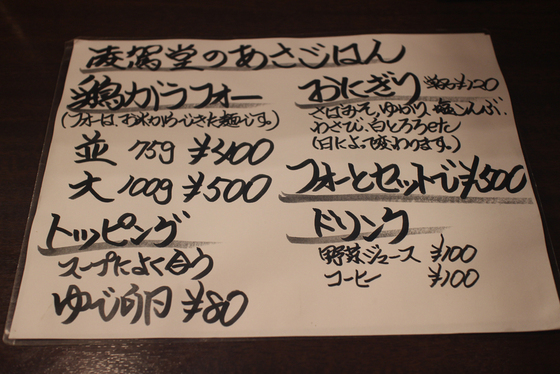 凌駕堂のあさごはん
鶏ガラフォー
(フォーは、お米からできた麺です。)
並 75g ¥400
大 100g ¥500
トッピング
スープによく合う
ゆで卵 ¥80
おにぎり 単品¥120
さばみそ、ゆかり、塩こんぶ、
わさび、白とろろetc
(日によって変わります。)
フォーとセットで¥500
ドリンク
野菜ジュース ¥100
コーヒー ¥100